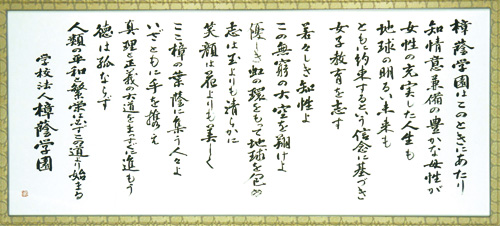 樟蔭学園はこのときにあたり
知情意兼備の豊かな女性が
女性の充実した人生も
地球の明るい未来も
ともに約束するという信念に基づき
女子教育を志す
若々しき知性よ
この無窮の大空を翔けよ
優しき虹の環をもって地球を包め
志は玉よりも清らかに
笑顔は花よりも美しく
ここ樟の葉蔭に集う人々よ
いざともに手を携え
真理と正義の大道をまっすぐに進もう
徳は孤ならず
人類の平和と繁栄は必ずこの道より始まる
学校法人樟蔭学園